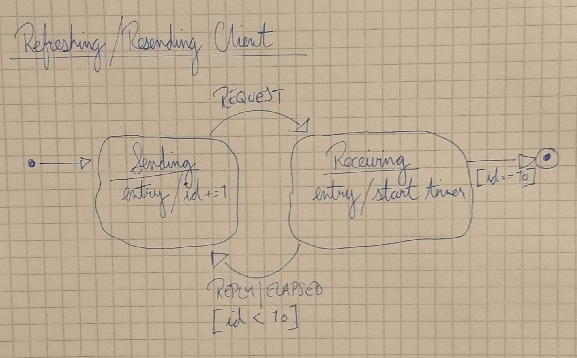 Refreshing/Resending Client
REQUEST
Sending
entry/id+=1
Receiving
entry/start timer
[id==10]
REPLY|ELAPSED
[id < 10]